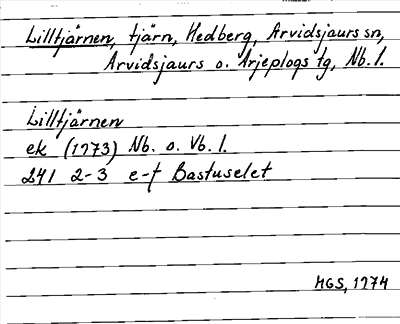 Lilltjärnen, tjärn, Hedberg, Arvidsjaurs sn,
Arvidsjaurs o. Arjeplogs tg, Nb. l.
Lilltjärnen
ek (1973) Nb. o. Vb. l.
241 2-3 e-f Bastuselet
MGS, 1974